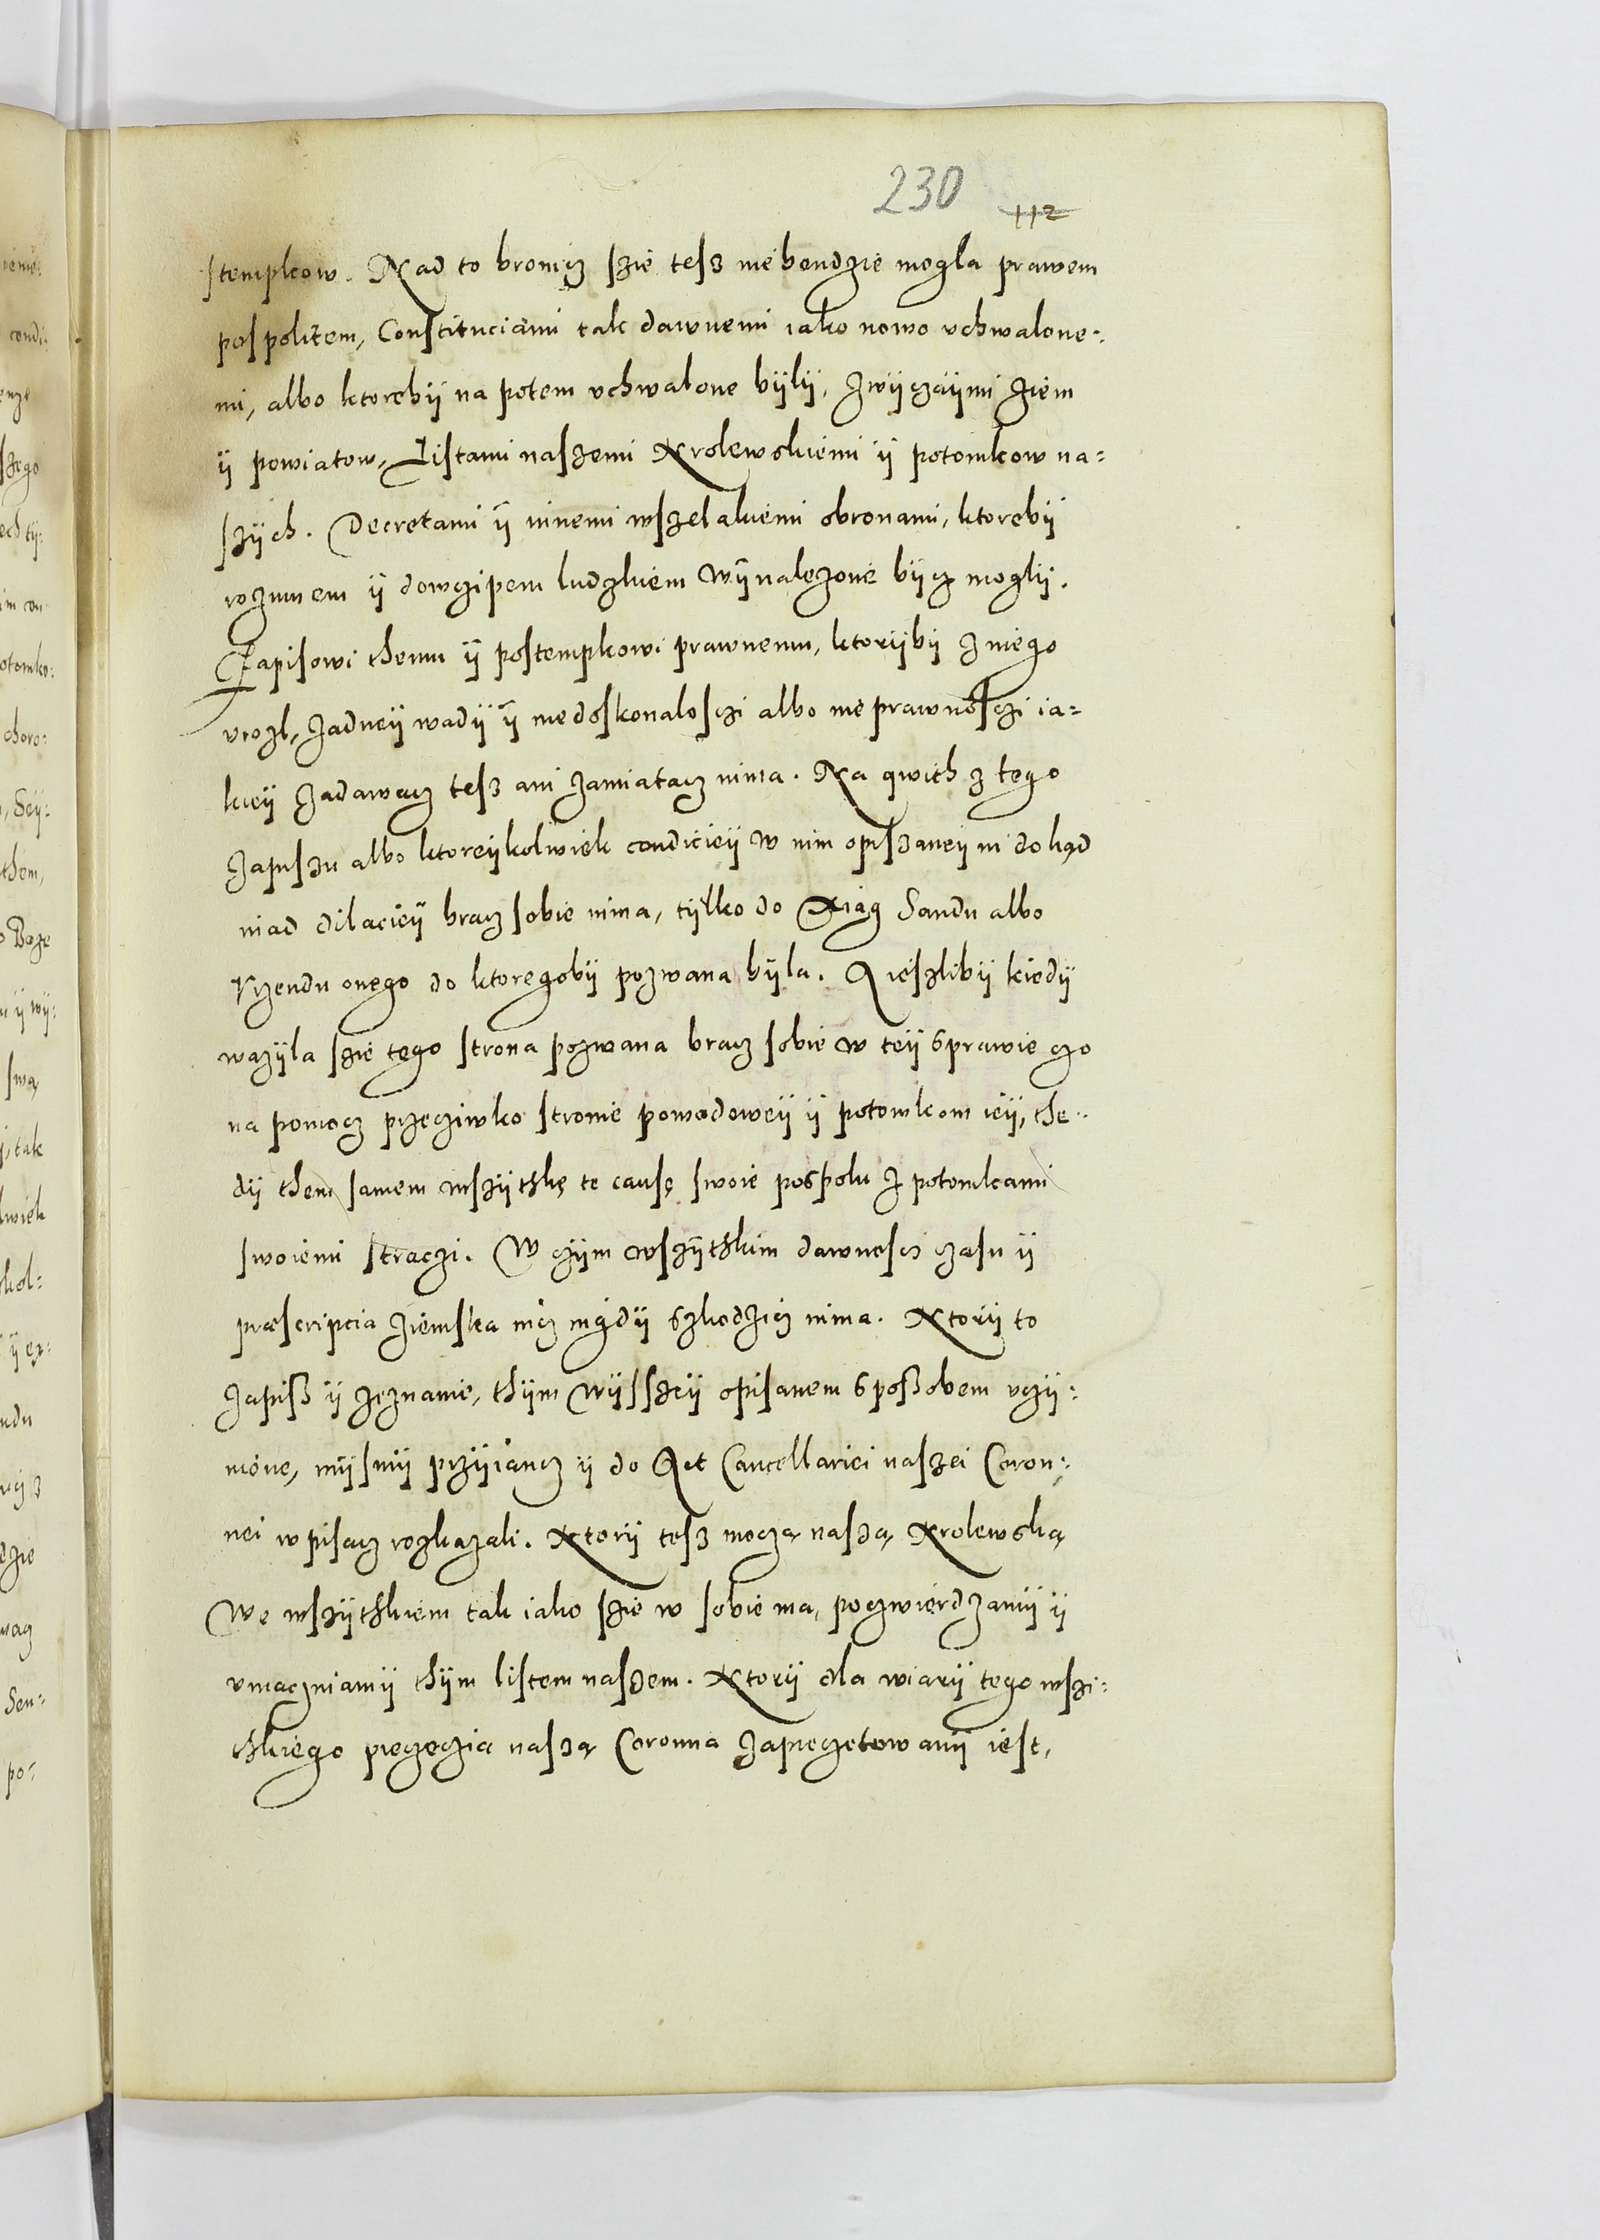 230
112
stempkow. Nad to bronicz szie tesz nie bendzie mogla prawem
pospolitem, Constituciami tak dawnemi iako nowo vchwalone=
mi, albo ktorebÿ na potem vchwalone bÿlÿ, zwÿczaÿmi ziem
ÿ powiatow, Listami naszemi Krolewskiemi ÿ potomkow na=
szÿch. Decretami ÿ ninemi wszelakiemi obronami, ktorebÿ
rozumem ÿ dowczipem ludzkiem wÿnalezone bÿcz moglÿ.
Zapisowi themu ÿ postempkowi prawnemu, ktorÿbÿ z niego
vrozl, zadneÿ wadÿ ÿ niedoskonalosczi albo nieprawnosczi ia=
kieÿ zadawacz tesz ani zamiatacz nima. Na qwith z tego
zapiszu albo ktoreÿkolwiek condicieÿ w nim opiszaneÿ ni dokąd
niad dilacieÿ bracz sobie nima, tÿlko do Xiąg Sandu albo
Vrzendu onego do ktoregobÿ pozwana bÿla. A ieszlibÿ kiedÿ
wazÿla szie tego strona pozwana bracz sobie w teÿ sprawie czo
na pomocz przeciwko stronie powodoweÿ ÿ potomkom ieÿ, the=
dÿ them samem wszÿthkę te causę swoie pospolu z potomkami
swoiemi straczi. W czÿm wszÿthkim dawnosci czasu ÿ
præscripcia ziemska nicz nigdÿ szkodzicz nima. Ktorÿ to
zapisz ÿ zeznanie, thÿm wÿsszeÿ opisanem sposzobem vczÿ=
nione, mÿsmÿ przÿiancz ÿ do Act Cancellariei naszei Coron=
nei wpisacz rozkazali. Ktorÿ tesz moczą naszą Krolewską
We wszÿthkiem tak iako szie w sobie ma, poczwierdzamÿ ÿ
vmaczniamÿ thÿm listem naszem. Ktorÿ dla wiarÿ tego wszi=
thkiego pieczęcią naszą Coronna zapieczetowanÿ iest,